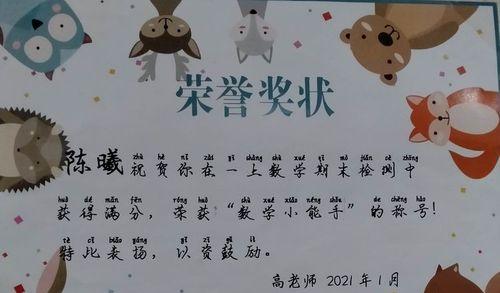 荣誉奖状
zhù hè nǐ zài yī shàng shù xué qī mò jiǎn cè zhōng
陈曦祝贺你在一上数学期末检测中
huò dé mǎn fēn róng huò shù xué xiǎo néng shǒu de chēng hào
获得满分，荣获“数学小能手”的称号！
tè cǐ biǎo yáng yǐ zī gǔ lì
特此表扬，以资鼓励。
高老师 2021年1月